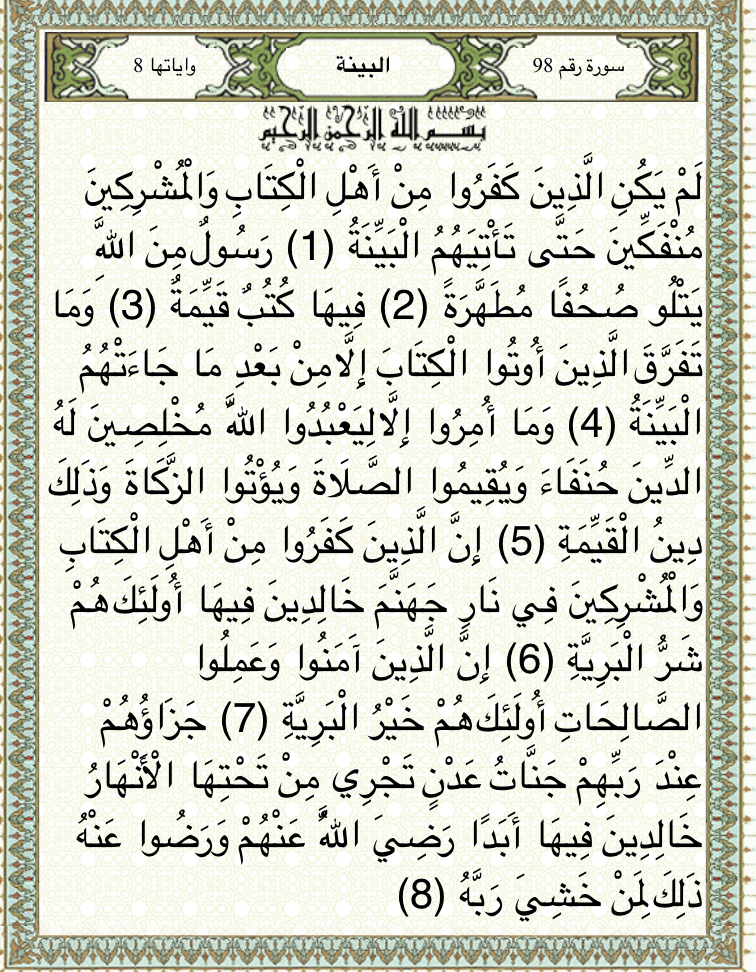 سورة رقم 98 البينة واياتها 8
بسم الله الرحمن الرحيم
لَمْ يَكُنِ الَّذِينَ كَفَرُوا مِنْ أَهْلِ الْكِتَابِ وَالْمُشْرِكِينَ
مُنْفَكِّينَ حَتَّى تَأْتِيَهُمُ الْبَيِّنَةُ (1) رَسُولٌ مِنَ اللَّهِ
يَتْلُو صُحُفًا مُطَهَّرَةً (2) فِيهَا كُتُبٌ قَيِّمَةٌ (3) وَمَا
تَفَرَّقَ الَّذِينَ أُوتُوا الْكِتَابَ إِلَّا مِنْ بَعْدِ مَا جَاءَتْهُمُ
الْبَيِّنَةُ (4) وَمَا أُمِرُوا إِلَّا لِيَعْبُدُوا اللَّهَ مُخْلِصِينَ لَهُ
الدِّينَ حُنَفَاءَ وَيُقِيمُوا الصَّلَاةَ وَيُؤْتُوا الزَّكَاةَ وَذَلِكَ
دِينُ الْقَيِّمَةِ (5) إِنَّ الَّذِينَ كَفَرُوا مِنْ أَهْلِ الْكِتَابِ
وَالْمُشْرِكِينَ فِي نَارِ جَهَنَّمَ خَالِدِينَ فِيهَا أُولَئِكَ هُمْ
شَرُّ الْبَرِيَّةِ (6) إِنَّ الَّذِينَ آمَنُوا وَعَمِلُوا
الصَّالِحَاتِ أُولَئِكَ هُمْ خَيْرُ الْبَرِيَّةِ (7) جَزَاؤُهُمْ
عِنْدَ رَبِّهِمْ جَنَّاتُ عَدْنٍ تَجْرِي مِنْ تَحْتِهَا الْأَنْهَارُ
خَالِدِينَ فِيهَا أَبَدًا رَضِيَ اللَّهُ عَنْهُمْ وَرَضُوا عَنْهُ
ذَلِكَ لِمَنْ خَشِيَ رَبَّهُ (8)